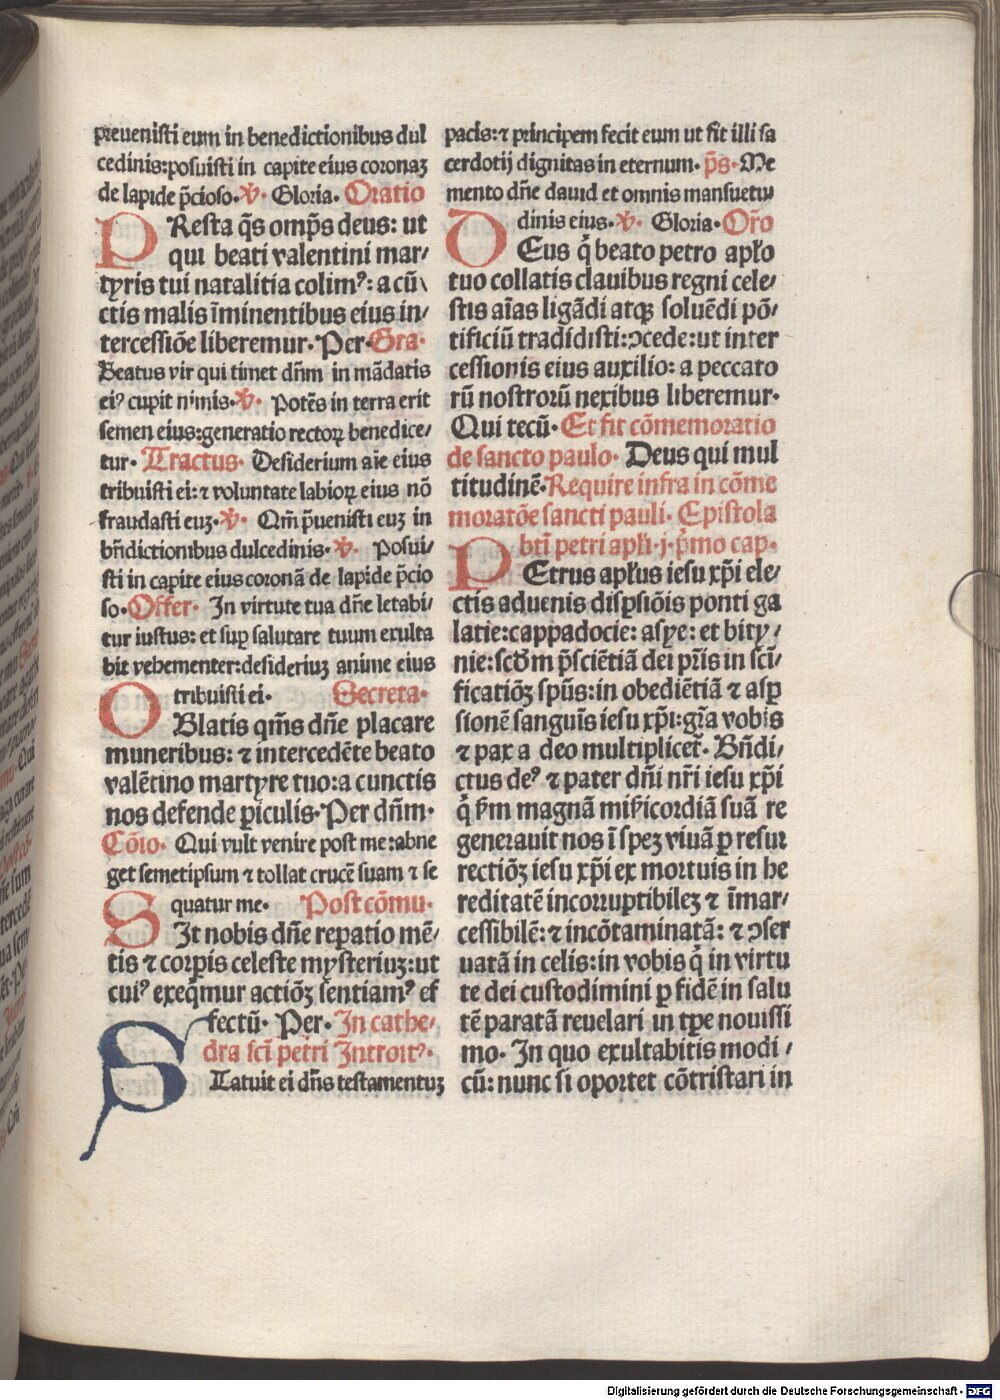 preuenisti eum in benedictionibus dul
cedinis:posuisti in capite eius coronaꝫ
de lapide p̄cioso·℣· Gloria· Oratio
PResta q̄s omp̄s deus: ut
qui beati valentini mar⸗
tyris tui natalitia colimꝰ: a cū
ctis malis īminentibus eius in⸗
tercessiōe liberemur· Per· Gra·
Beatus vir qui timet dn̄m in mādatis
eiꝰ cupit nimis·℣· Potēs in terra erit
semen eius:generatio rectoꝝ benedice⸗
tur· Tractus· Desiderium aīe eius
tribuisti ei: ⁊ voluntate labioꝝ eius nō
fraudasti euꝫ·℣· Qm̄ p̄uenisti euꝫ in
bn̄dictionibus dulcedinis·℣· Posui⸗
sti in capite eius coronā de lapide p̄cio
so· Offer· In virtute tua dn̄e letabi⸗
tur iustus: et suꝑ salutare tuum exulta
bit vehementer:desideriuꝫ anime eius
tribuisti ei· Secreta·
OBlatis qm̄s dn̄e placare
muneribus: ⁊ intercedēte beato
valētino martyre tuo:a cunctis
nos defende ꝑiculis· Per dn̄m·
Cōio· Qui vult venire post me:abne
get semetipsum ⁊ tollat crucē suam ⁊ se
quatur me· Post cōmu·
SIt nobis dn̄e reꝑatio mē⸗
tis ⁊ corꝑis celeste mysteriuꝫ:ut
cuiꝰ exeq̄mur actiōꝫ sentiamꝰ ef
fectū· Per· In cathe⸗
dra scī petri Introitꝰ·
STatuit ei dn̄s testamentuꝫ
pacis:⁊ principem fecit eum ut sit illi sa
cerdotij dignitas in eternum· p̄s· Me
mento dn̄e dauid et omnis mansuetu
dinis eius·℣· Gloria· Orō
DEus q̄ beato petro apło
tuo collatis clauibus regni cele⸗
stis aīas ligādi atqꝫ soluēdi pō⸗
tificiū tradidisti:ꝯcede:ut inter
cessionis eius auxilio: a peccato
rū nostrorū nexibus liberemur·
Qui tecū· Et fit cōmemoratio
de sancto paulo· Deus qui mul
titudinē· Require infra in cōme
moratōe sancti pauli· Epistola
bt̄i petri apłi·j·p̄mo cap·
PEtrus apłus iesu xp̄i ele⸗
ctis aduenis disꝑsiōis ponti ga
latie:cappadocie: asye: et bity⸗
nie:scd̄m p̄sciētiā dei pr̄is in sc̄i⸗
ficatiōꝫ spūs:in obediētiā ⁊ asꝑ
sionē sanguīs iesu xp̄i:gr̄a vobis
⁊ pax a deo multiplicet̄· Bn̄di⸗
ctus deꝰ ⁊ pater dn̄i nr̄i iesu xp̄i
q̄ sm̄ magnā miꝭicordiā suā re
generauit nos ī speꝫ viuā ꝑ resur
rectiōꝫ iesu xp̄i ex mortuis in he
reditatē incorruptibileꝫ ⁊ īmar⸗
cessibilē: ⁊ incōtaminatā: ⁊ ꝯser
uatā in celis:in vobis q̄ in virtu
te dei custodimini ꝑ fidē in salu
tē paratā reuelari in tp̄e nouissi
mo· In quo exultabitis modi⸗
cū: nunc si oportet cōtristari in
Digitalisierung gefördert durch die Deutsche Forschungsgemeinschaft - DFG